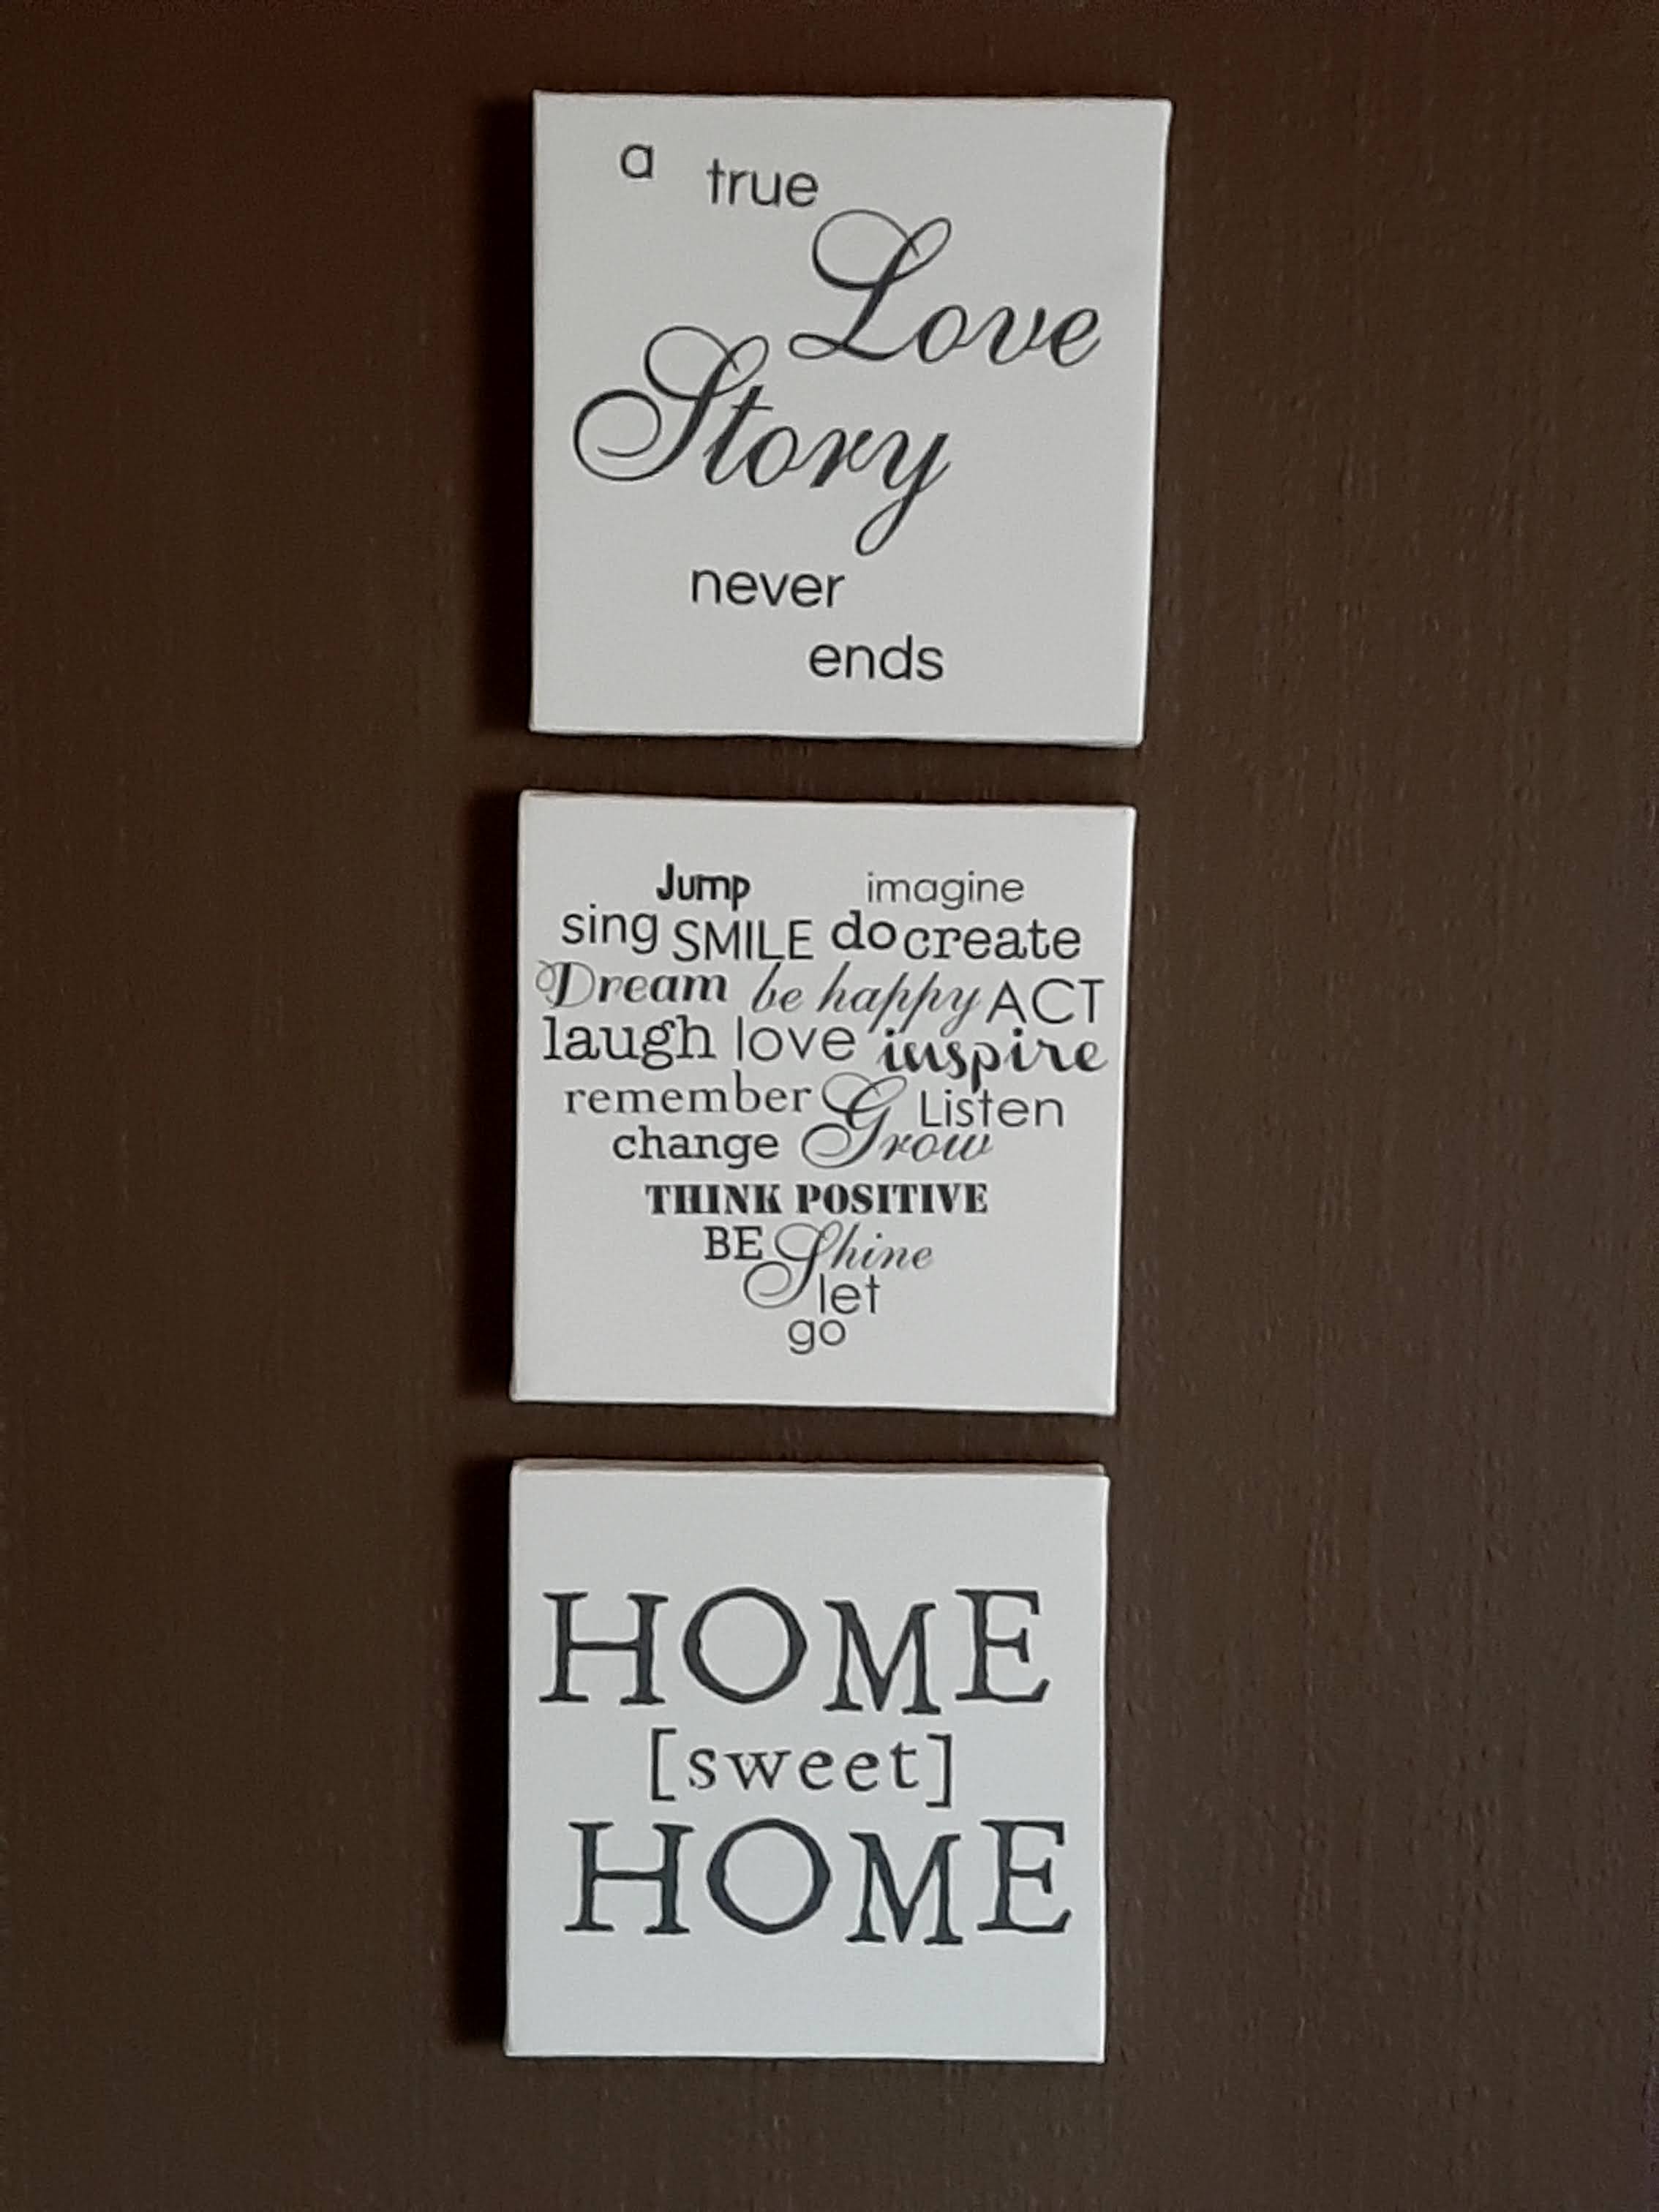 a true
Love
Story
never
ends
Jump imagine
sing SMILE do create
Dream be happy ACT
laugh love inspire
remember Grow Listen
change
THINK POSITIVE
BE Shine
let
go
HOME
[sweet]
HOME